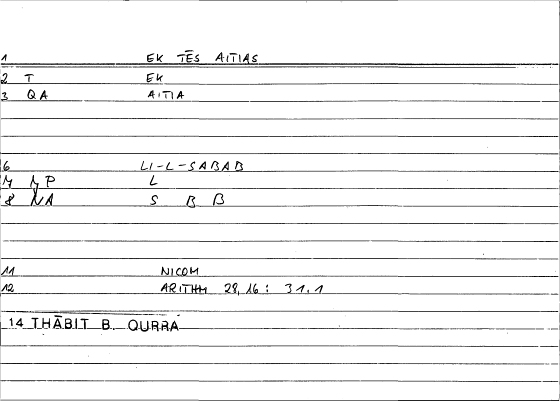 1 EK TĒS AITIAS
2 T EK
3 QA AITIA
6 LI-L-SABAB
M MP L
8 NA S B B
11 NICOM
12 ARITHM 28,16: 31,1
14 THĀBIT B. QURRA